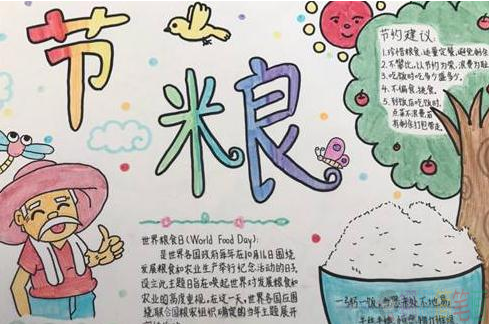 节粮
节约建议:
1.珍惜粮食,适量定餐,避免剩余
2.不攀比,以节约为荣,浪费为耻
3.吃饭时吃多少盛多少。
4.不偏食,挑食。
5.到饭店吃饭时,
点菜不浪费,若
有剩余打包带走。
世界粮食日(World Food Day):
是世界各国政府每年在10月16日围绕
发展粮食和农业生产举行纪念活动的日子,
设立此主题日旨在唤起世界对发展粮食和
农业的高度重视。在这一天,世界各国应围
绕联合国粮农组织确定的当年主题展开
一粥一饭,当思来处不